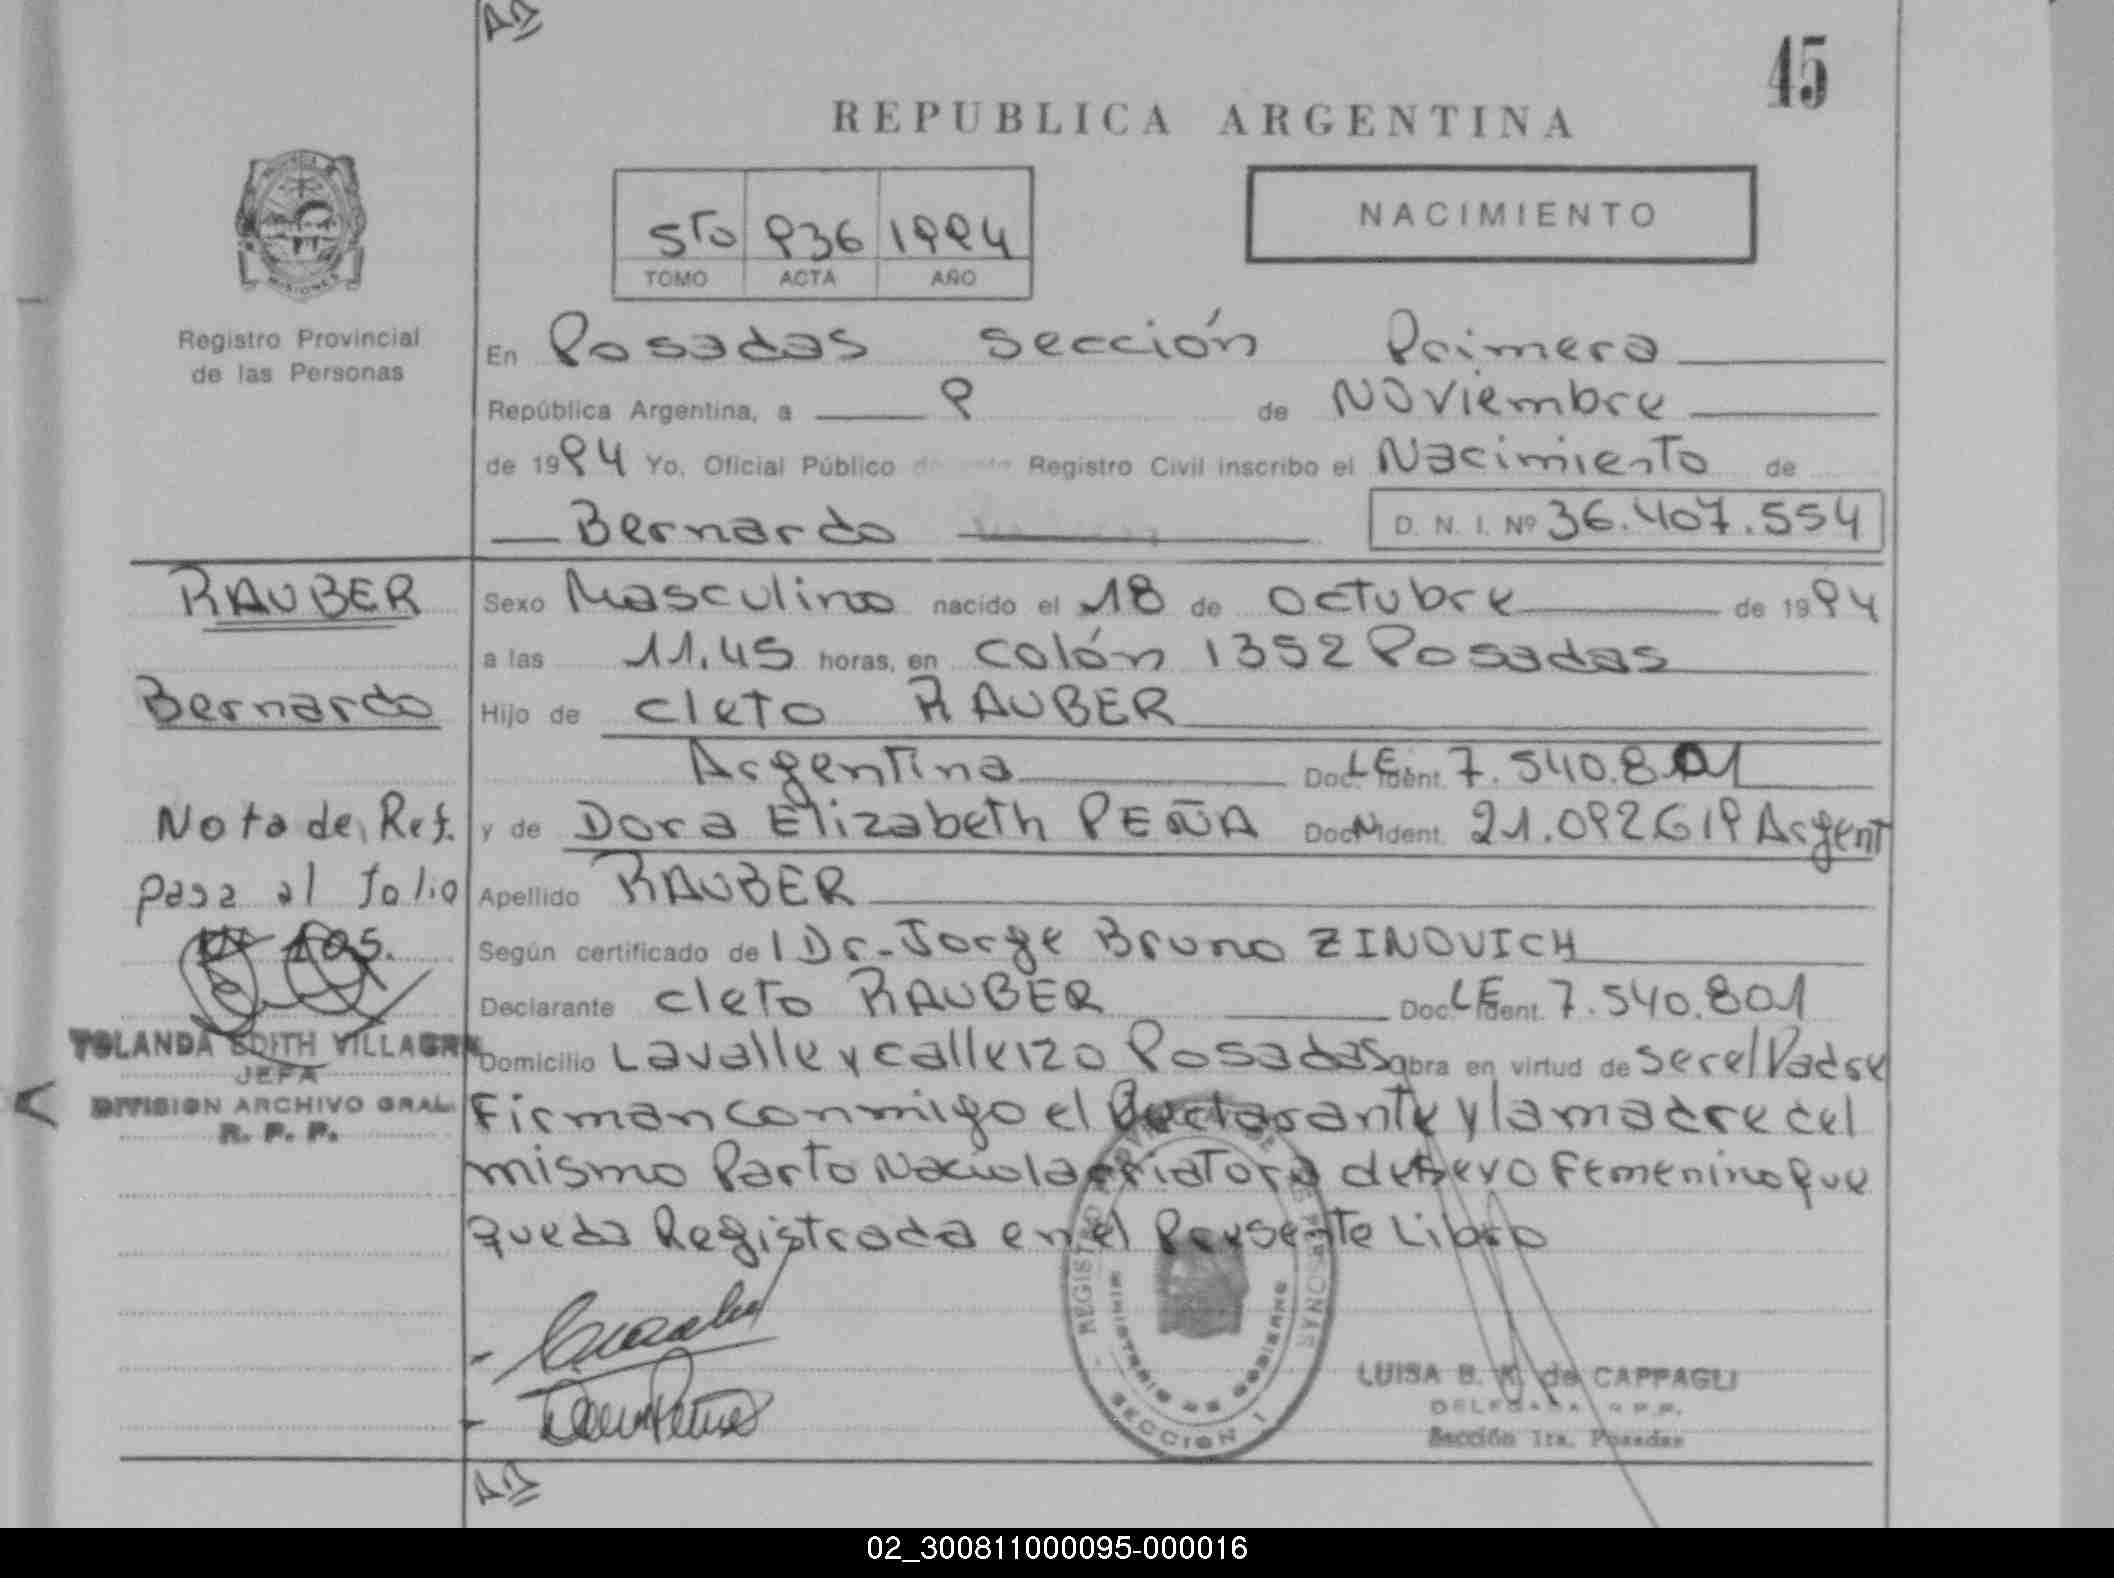 45
REPUBLICA ARGENTINA
5to 936 1994
TOMO ACTA AÑO
NACIMIENTO
MISIONES
Registro Provincial
de las Personas
En Posadas sección Primera
República Argentina, a 9 de Noviembre
de 1994 Yo, Oficial Público Registro Civil inscribo el Nacimiento de
Bernardo D. N. I. Nº 36.407.554
RAUBER
Bernardo
Nota de Ref.
pasa al folio
105.
YOLANDA EDITH VILLAGRA
JEFA
DIVISION ARCHIVO GRAL.
R. P. P.
Sexo Masculino nacido el 18 de octubre de 1994
a las 11.45 horas, en colón 1352 Posadas
Hijo de cleto RAUBER
Argentina Doc. Ident. LE. 7.540.801
y de Dora Elizabeth PEÑA Doc. Ident. 21.092619 Argent
Apellido RAUBER
Según certificado de l Dr. Jorge Bruno ZINOVICH
Declarante cleto RAUBER Doc. Ident. LE 7.540.801
Domicilio Lavalle y calle 120 Posadas obra en virtud de ser el Padre
Firman conmigo el Declarante y la madre del
mismo Parto Nació la de sexo Femenino que
queda Registrada en el Presente Libro
REGISTRO PROVINCIAL DE LAS PERSONAS
MINISTERIO DE GOBIERNO
SECCION 1
LUISA B. K. de CAPPAGLI
DELEGADA R.P.P.
Sección 1ra. Posadas
02_300811000095-000016